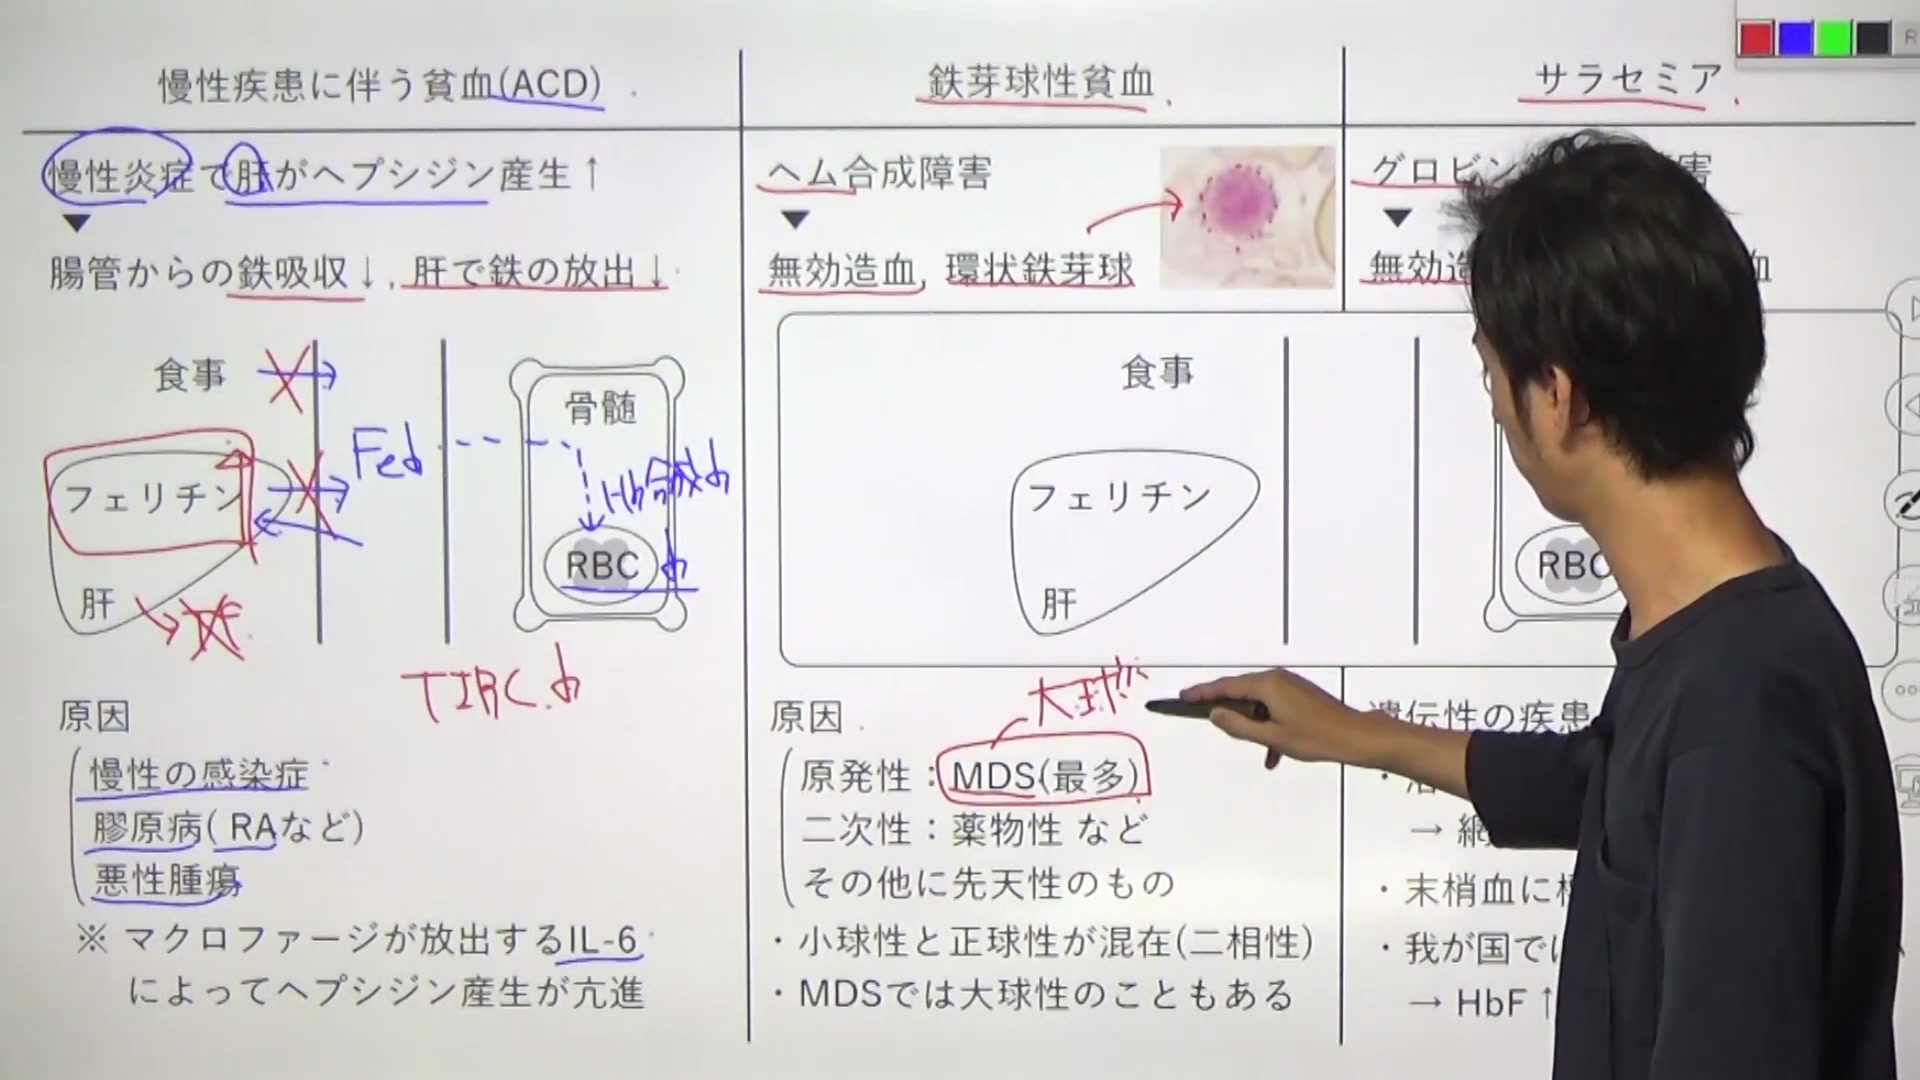 慢性疾患に伴う貧血(ACD)
慢性炎症で肝がヘプシジン産生↑
▼
腸管からの鉄吸収↓, 肝で鉄の放出↓
食事
フェリチン
肝
Fe↓
骨髄
Hb合成↓
RBC ↓
TIBC↓
原因
慢性の感染症
膠原病( RAなど)
悪性腫瘍
※ マクロファージが放出するIL-6
によってヘプシジン産生が亢進
鉄芽球性貧血
ヘム合成障害
▼
無効造血, 環状鉄芽球
食事
フェリチン
肝
大球
原因
原発性：MDS(最多)
二次性：薬物性 など
その他に先天性のもの
・小球性と正球性が混在(二相性)
・MDSでは大球性のこともある
サラセミア
グロビン
▼
無効造
RBC
遺伝性の疾患
→ 網
・末梢血に
・我が国では
→ HbF↑
R